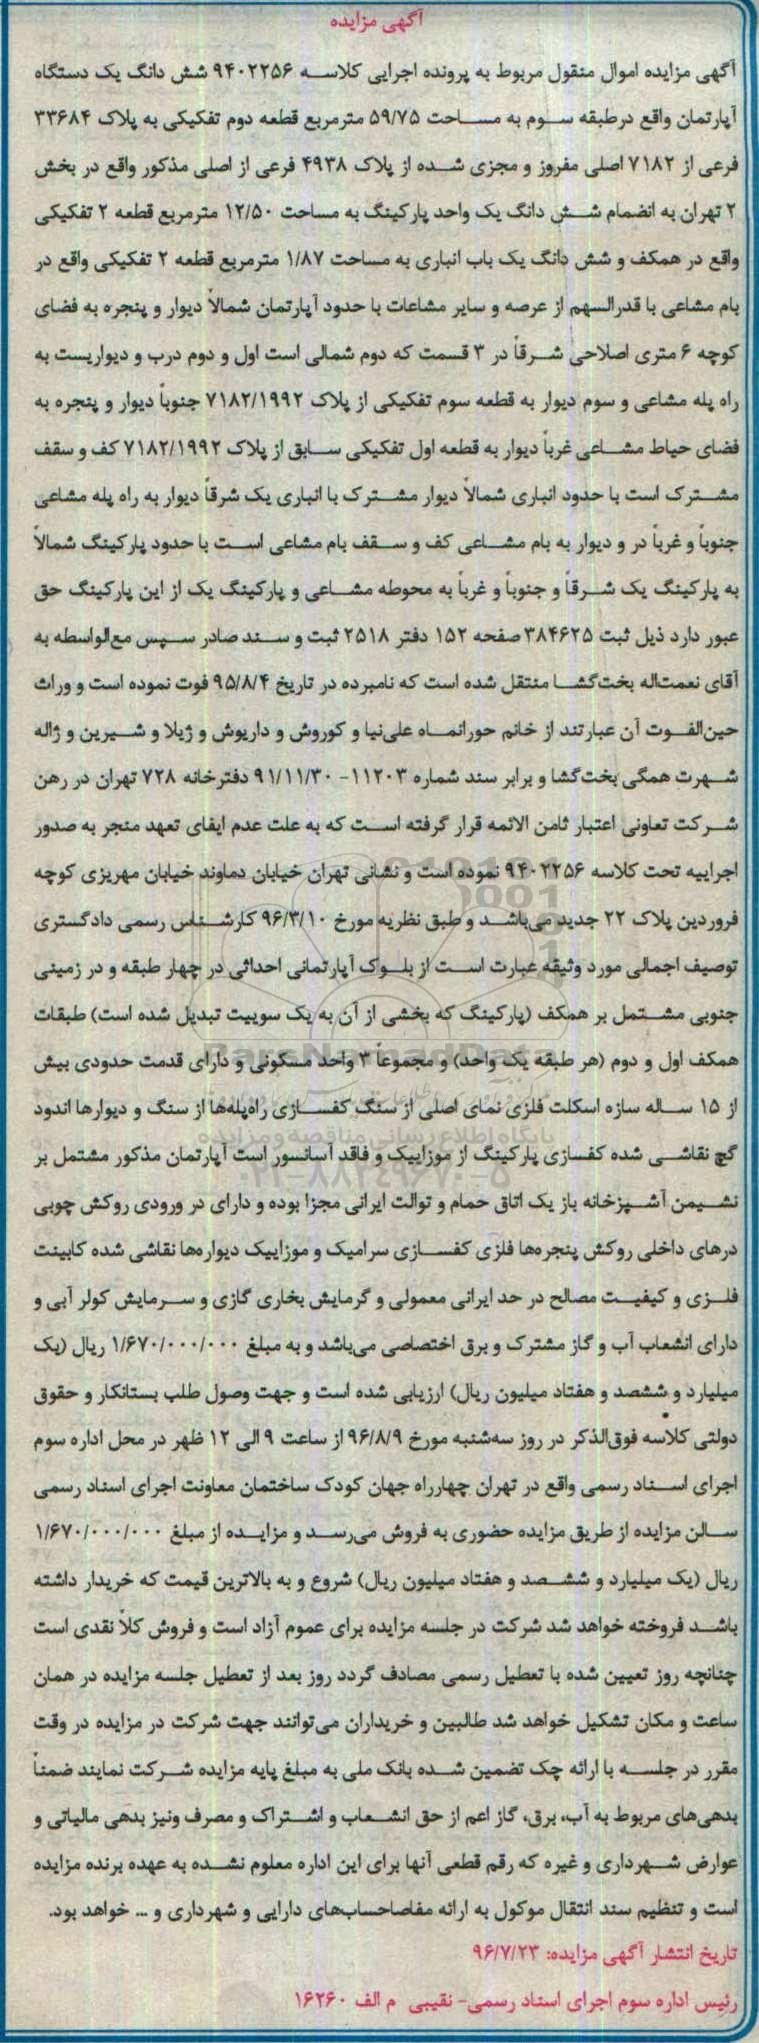 آگهی مزایده
آگهی مزایده اموال منقول مربوط به پرونده اجرایی کلاسه ۹۴۰۲۲۵۶ شش دانگ یک دستگاه
آپارتمان واقع درطبقه سوم به مساحت ۵۹/۷۵ مترمربع قطعه دوم تفکیکی به پلاک ۳۳۶۸۴
فرعی از ۷۱۸۲ اصلی مفروز و مجزی شده از پلاک ۴۹۳۸ فرعی از اصلی مذکور واقع در بخش
۲ تهران به انضمام شش دانگ یک واحد پارکینگ به مساحت ۱۲/۵۰ مترمربع قطعه ۲ تفکیکی
واقع در همکف و شش دانگ یک باب انباری به مساحت ۱/۸۷ مترمربع قطعه ۲ تفکیکی واقع در
بام مشاعی با قدرالسهم از عرصه و سایر مشاعات با حدود آپارتمان شمالاً دیوار و پنجره به فضای
کوچه ۶ متری اصلاحی شرقاً در ۳ قسمت که دوم شمالی است اول و دوم درب و دیواریست به
راه پله مشاعی و سوم دیوار به قطعه سوم تفکیکی از پلاک ۷۱۸۲/۱۹۹۲ جنوباً دیوار و پنجره به
فضای حیاط مشاعی غرباً دیوار به قطعه اول تفکیکی سابق از پلاک ۷۱۸۲/۱۹۹۲ کف و سقف
مشترک است با حدود انباری شمالاً دیوار مشترک با انباری یک شرقاً دیوار به راه پله مشاعی
جنوباً و غرباً در و دیوار به بام مشاعی کف و سقف بام مشاعی است با حدود پارکینگ شمالاً
به پارکینگ یک شرقاً و جنوباً و غرباً به محوطه مشاعی و پارکینگ یک از این پارکینگ حق
عبور دارد ذیل ثبت ۳۸۴۶۲۵ صفحه ۱۵۲ دفتر ۲۵۱۸ ثبت و سند صادر سپس مع‌الواسطه به
آقای نعمت‌اله بخت‌گشا منتقل شده است که نامبرده در تاریخ ۹۵/۸/۴ فوت نموده است و وراث
حین‌الفوت آن عبارتند از خانم حورانماه علی‌نیا و کوروش و داریوش و ژیلا و شیرین و ژاله
شهرت همگی بخت‌گشا و برابر سند شماره ۱۱۲۰۳- ۹۱/۱۱/۳۰ دفترخانه ۷۲۸ تهران در رهن
شرکت تعاونی اعتبار ثامن الائمه قرار گرفته است که به علت عدم ایفای تعهد منجر به صدور
اجراییه تحت کلاسه ۹۴۰۲۲۵۶ نموده است و نشانی تهران خیابان دماوند خیابان مهریزی کوچه
فروردین پلاک ۲۲ جدید می‌باشد و طبق نظریه مورخ ۹۶/۳/۱۰ کارشناس رسمی دادگستری
توصیف اجمالی مورد وثیقه عبارت است از بلوک آپارتمانی احداثی در چهار طبقه و در زمینی
جنوبی مشتمل بر همکف (پارکینگ که بخشی از آن به یک سوییت تبدیل شده است) طبقات
همکف اول و دوم (هر طبقه یک واحد) و مجموعاً ۳ واحد مسکونی و دارای قدمت حدودی بیش
از ۱۵ ساله سازه اسکلت فلزی نمای اصلی از سنگ کفسازی راه‌پله‌ها از سنگ و دیوارها اندود
گچ نقاشی شده کفسازی پارکینگ از موزاییک و فاقد آسانسور است آپارتمان مذکور مشتمل بر
نشیمن آشپزخانه باز یک اتاق حمام و توالت ایرانی مجزا بوده و دارای در ورودی روکش چوبی
درهای داخلی روکش پنجره‌ها فلزی کفسازی سرامیک و موزاییک دیوارها نقاشی شده کابینت
فلزی و کیفیت مصالح در حد ایرانی معمولی و گرمایش بخاری گازی و سرمایش کولر آبی و
دارای انشعاب آب و گاز مشترک و برق اختصاصی می‌باشد و به مبلغ ۱/۶۷۰/۰۰۰/۰۰۰ ریال (یک
میلیارد و ششصد و هفتاد میلیون ریال) ارزیابی شده است و جهت وصول طلب بستانکار و حقوق
دولتی کلاسه فوق‌الذکر در روز سه‌شنبه مورخ ۹۶/۸/۹ از ساعت ۹ الی ۱۲ ظهر در محل اداره سوم
اجرای اسناد رسمی واقع در تهران چهارراه جهان کودک ساختمان معاونت اجرای اسناد رسمی
سالن مزایده از طریق مزایده حضوری به فروش می‌رسد و مزایده از مبلغ ۱/۶۷۰/۰۰۰/۰۰۰
ریال (یک میلیارد و ششصد و هفتاد میلیون ریال) شروع و به بالاترین قیمت که خریدار داشته
باشد فروخته خواهد شد شرکت در جلسه مزایده برای عموم آزاد است و فروش کلاً نقدی است
چنانچه روز تعیین شده با تعطیل رسمی مصادف گردد روز بعد از تعطیل جلسه مزایده در همان
ساعت و مکان تشکیل خواهد شد طالبین و خریداران می‌توانند جهت شرکت در مزایده در وقت
مقرر در جلسه با ارائه چک تضمین شده بانک ملی به مبلغ پایه مزایده شرکت نمایند ضمناً
بدهی‌های مربوط به آب، برق، گاز اعم از حق انشعاب و اشتراک و مصرف ونیز بدهی مالیاتی و
عوارض شهرداری و غیره که رقم قطعی آنها برای این اداره معلوم نشده به عهده برنده مزایده
است و تنظیم سند انتقال موکول به ارائه مفاصاحساب‌های دارایی و شهرداری و ... خواهد بود.
تاریخ انتشار آگهی مزایده: ۹۶/۷/۲۳
رئیس اداره سوم اجرای اسناد رسمی- نقیبی م الف ۱۶۲۶۰
پایگاه اطلاع رسانی مناقصه و مزایده
۰۲۱-۸۸۳۴۹۶۷۰-۵